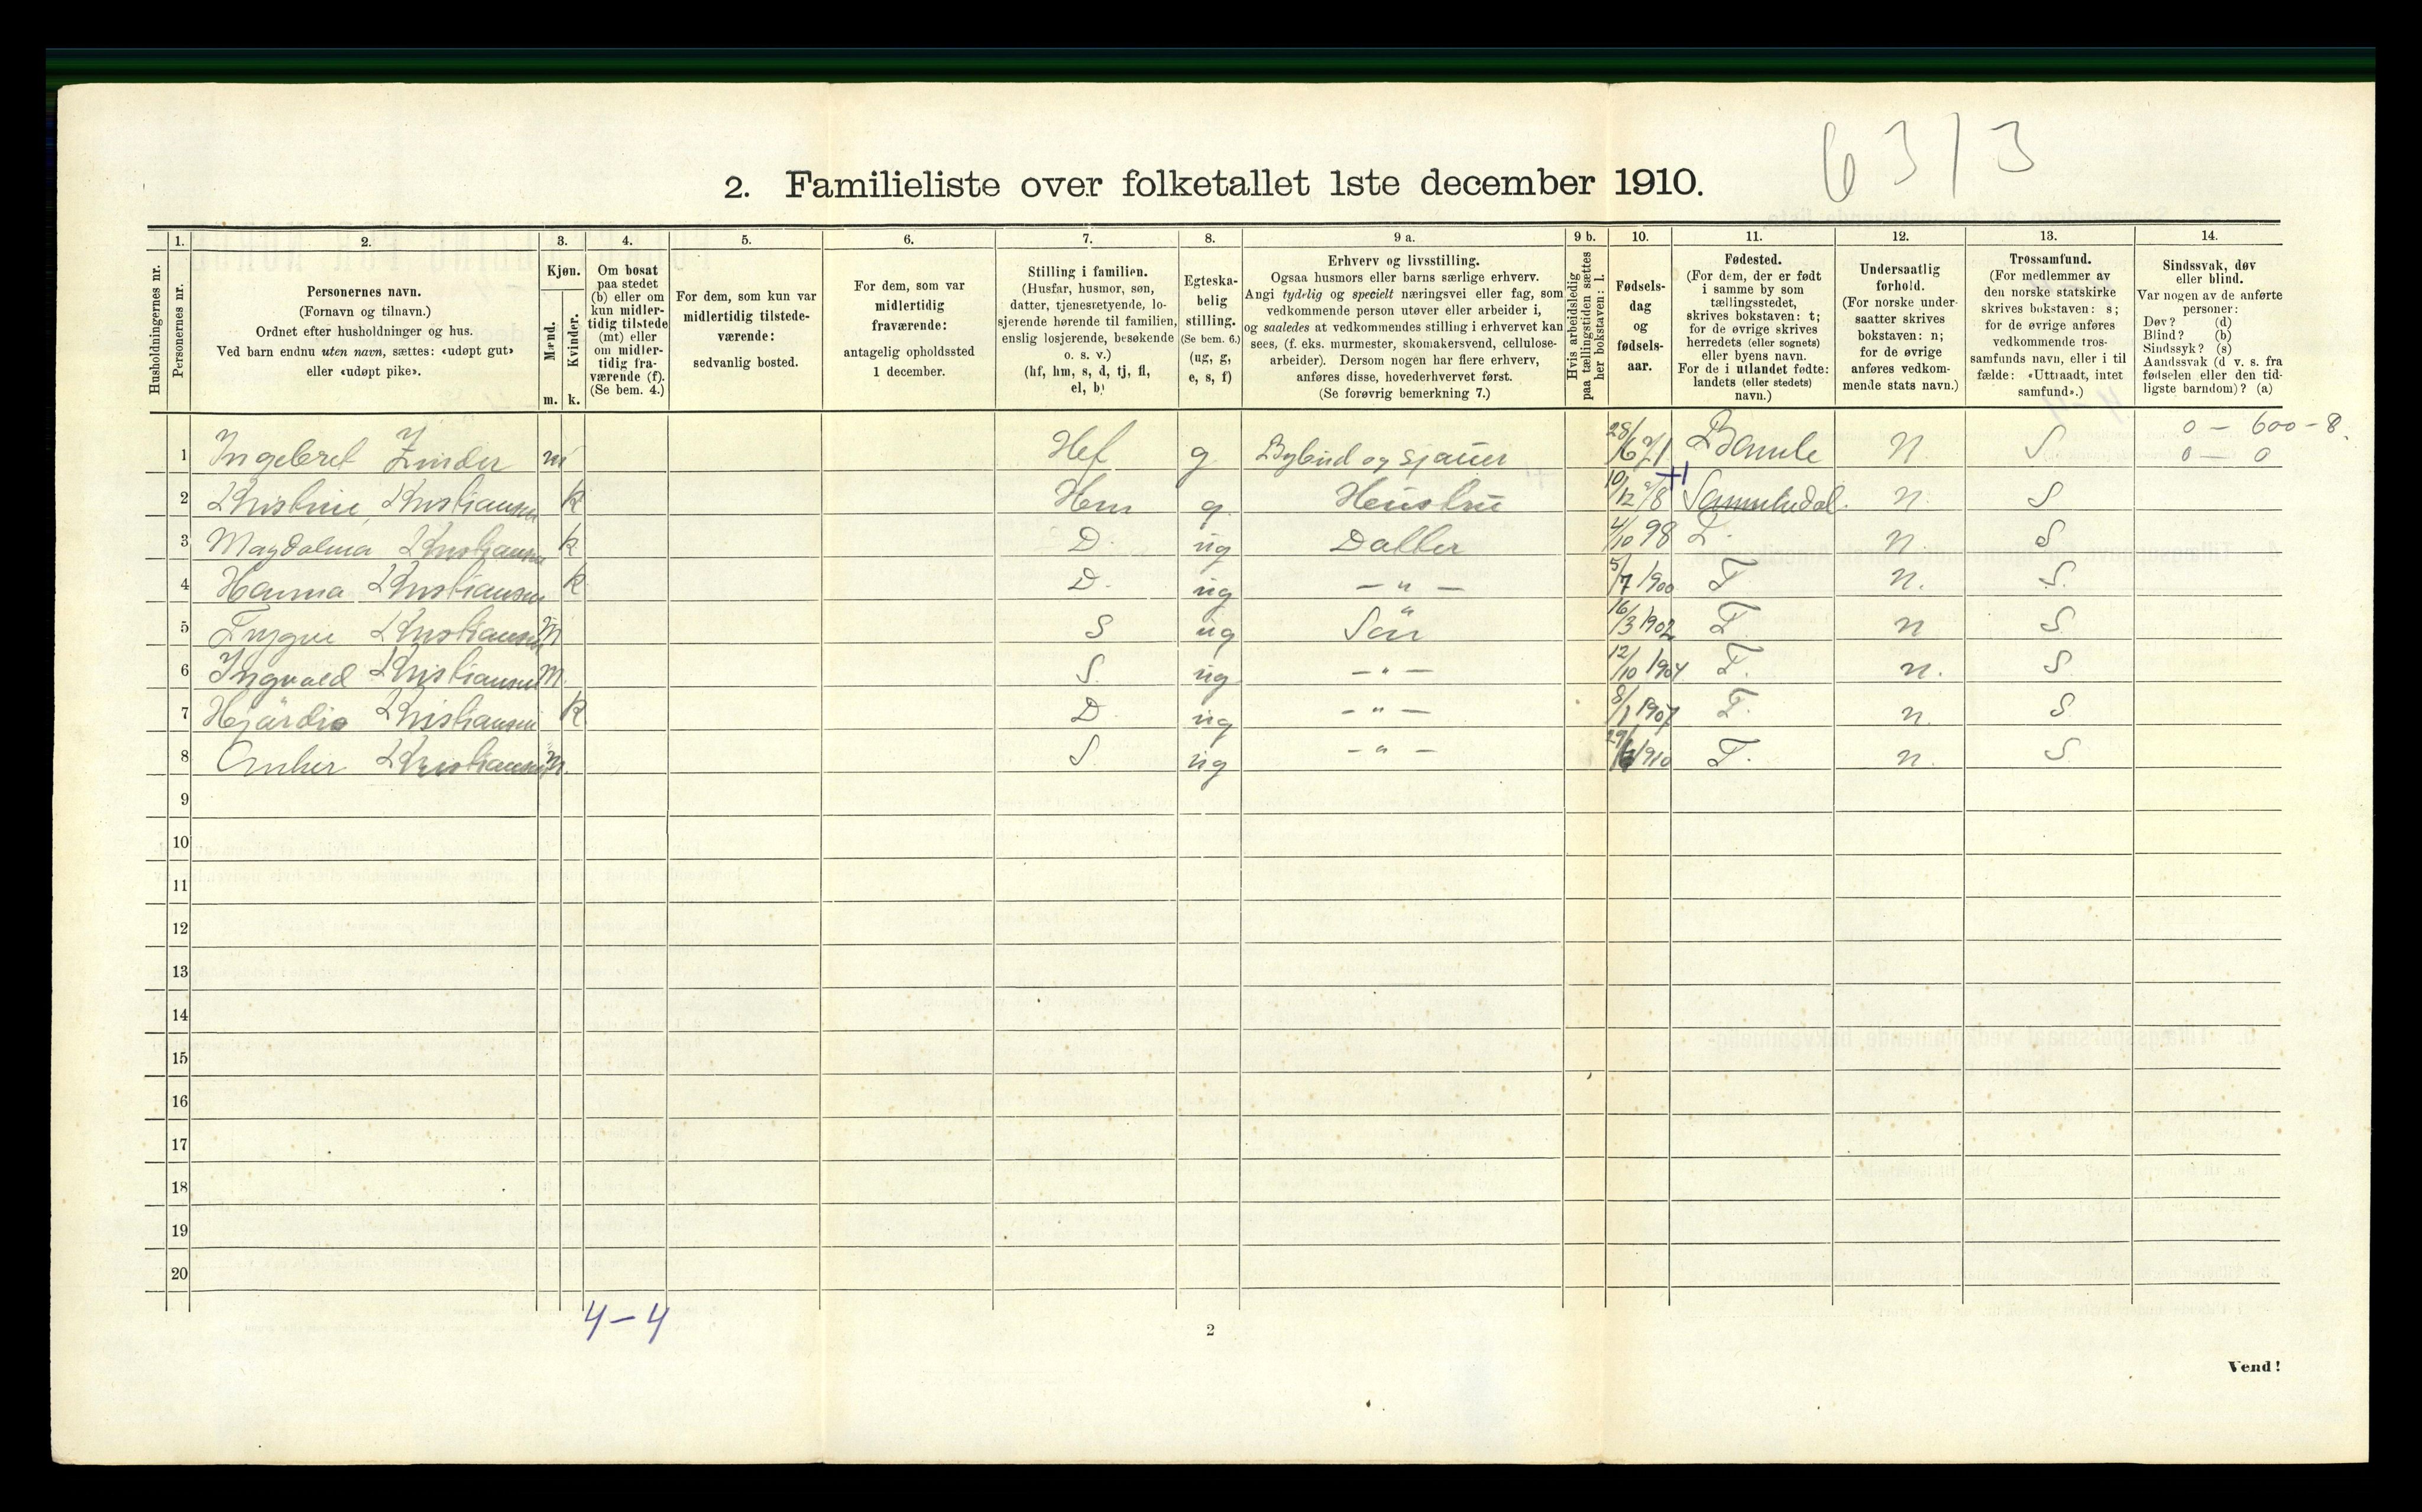 6313
2. Familieliste over folketallet 1ste december 1910.
Husholdningernes nr.
1.
Personernes nr.
2.
Personernes navn.
(Fornavn og tilnavn.)
Ordnet efter husholdninger og hus.
Ved barn endnu uten navn, sættes: «udøpt gut»
eller «udøpt pike».
3.
Kjøn.
Mænd.
Kvinder.
m. k.
4.
Om bosat
paa stedet
(b) eller om
kun midler-
tidig tilstede
(mt) eller
om midler-
tidig fra-
værende (f).
(Se bem. 4.)
5.
For dem, som kun var
midlertidig tilstede-
værende:
sedvanlig bosted.
6.
For dem, som var
midlertidig
fraværende:
antagelig opholdssted
1 december.
7.
Stilling i familien.
(Husfar, husmor, søn,
datter, tjenestetyende, lo-
sjerende hørende til familien,
enslig losjerende, besøkende
o. s. v.)
(hf, hm, s, d, tj, fl,
el, b)
8.
Egteska-
belig
stilling.
(Se bem. 6.)
(ug, g,
e, s, f)
9 a.
Erhverv og livsstilling.
Ogsaa husmors eller barns særlige erhverv.
Angi tydelig og specielt næringsvei eller fag, som
vedkommende person utøver eller arbeider i,
og saaledes at vedkommendes stilling i erhvervet kan
sees, (f. eks. murmester, skomakersvend, cellulose-
arbeider). Dersom nogen har flere erhverv,
anføres disse, hovederhvervet først.
(Se forøvrig bemerkning 7.)
9 b.
Hvis arbeidsledig
paa tællingstiden sættes
her bokstaven: l.
10.
Fødsels-
dag
og
fødsels-
aar.
11.
Fødested.
(For dem, der er født
i samme by som
tællingsstedet,
skrives bokstaven: t;
for de øvrige skrives
herredets (eller sognets)
eller byens navn.
For de i utlandet fødte:
landets (eller stedets)
navn.)
12.
Undersaatlig
forhold.
(For norske under-
saatter skrives
bokstaven: n;
for de øvrige
anføres vedkom-
mende stats navn.)
13.
Trossamfund.
(For medlemmer av
den norske statskirke
skrives bokstaven: s;
for de øvrige anføres
vedkommende tros-
samfunds navn, eller i til-
fælde: «Uttraadt, intet
samfund».)
14.
Sindssvak, døv
eller blind.
Var nogen av de anførte
personer:
Døv? (d)
Blind? (b)
Sindssyk? (s)
Aandssvak (d. v. s. fra
fødselen eller den tid-
ligste barndom)? (a)
0 – 600 – 8.
1 Ingebret m Hef g Bybud og Sjauer 28/6 71 Bamle n S 0 — 0
2 Kristine Kristiansen k Hm g. Hustru 10/12 Sannikedal. n. S
3 Magdalena Kristiansen k D. ug Datter 4/10 98 T. n. S
4 Hanna Kristiansen k D. ug – " – 5/7 1900 T. n. S.
5 Trygve Kristiansen M S ug Sön 16/3 1902 T. n S.
6 Ingvald Kristiansen M. S. ug – " – 12/10 1904 T. n. S
7 Hjördis Kristiansen k D. ug – " – 8/1 1907 T. n. S
8 Kristiansen m. S. ug – " – 29/6 1910 T. n. S.
9
10
11
12
13
14
15
16
17
18
19
20
4 – 4
2
Vend!